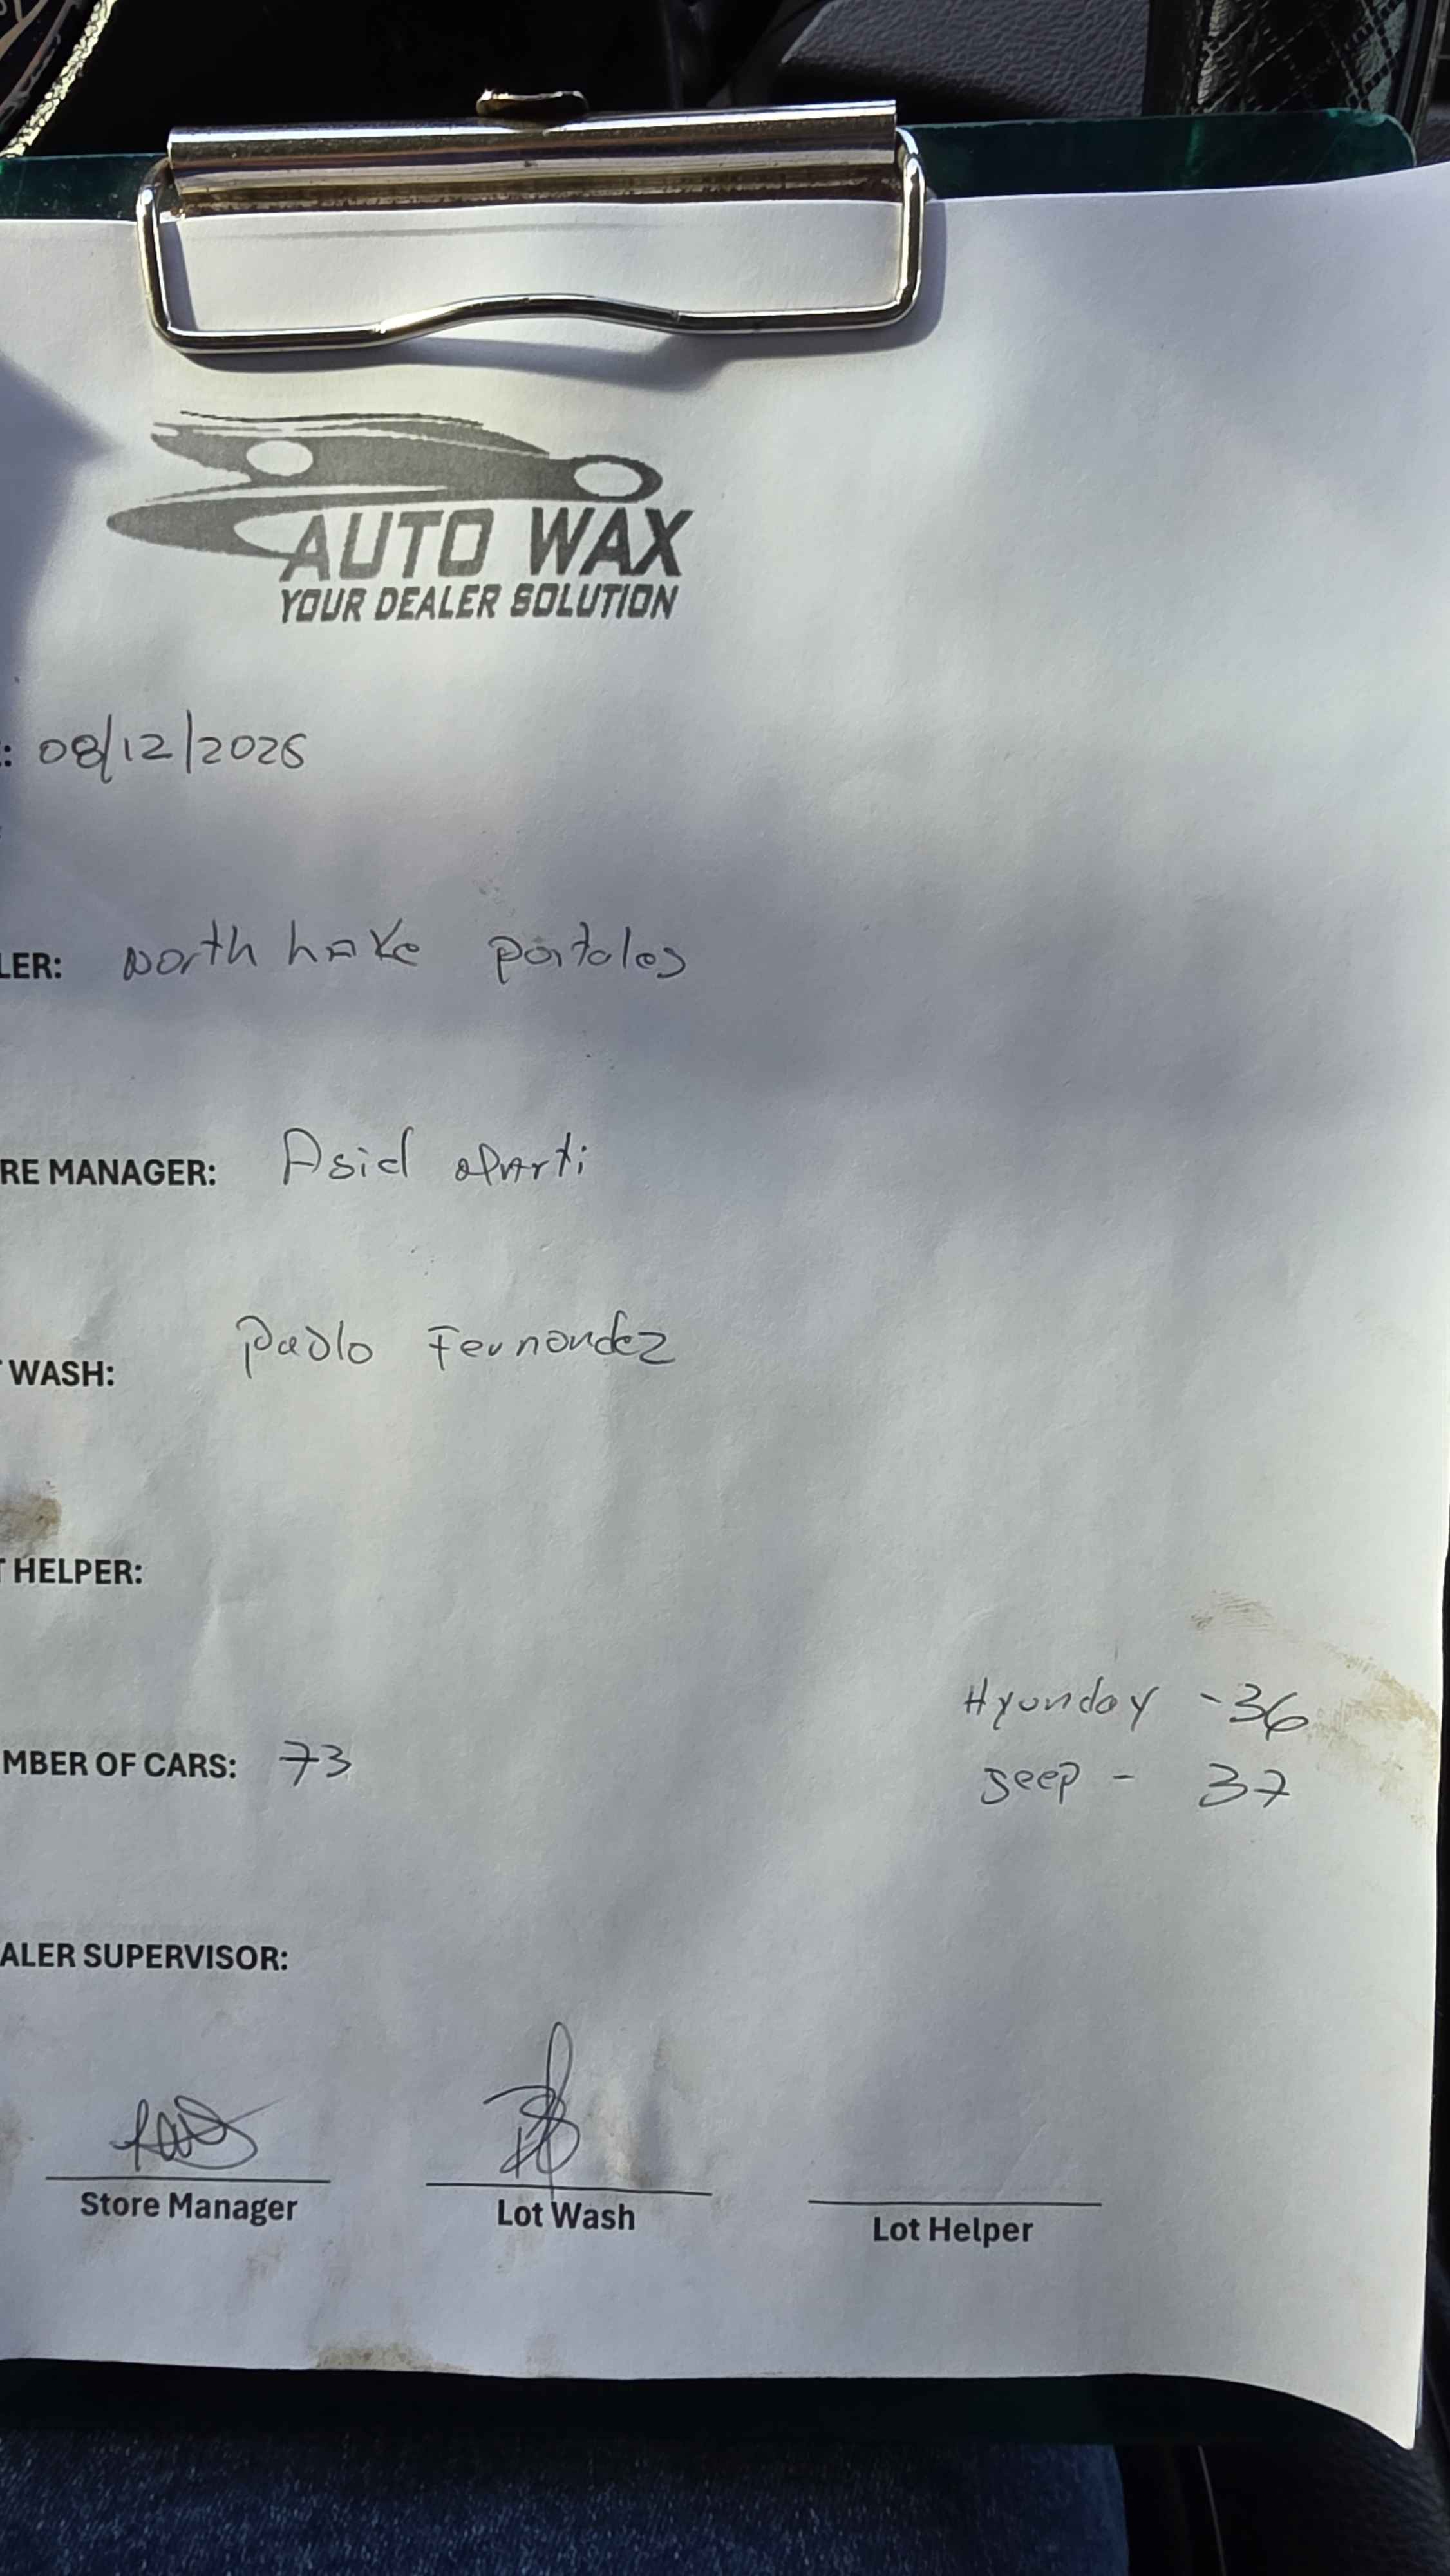 AUTO WAX
YOUR DEALER SOLUTION
: 08/12/2026
LER: North Lake portales
RE MANAGER: Asid
WASH: Pablo Fernandez
T HELPER:
Hyunday - 36
MBER OF CARS: 73
Jeep - 37
ALER SUPERVISOR:
Store Manager
Lot Wash
Lot Helper